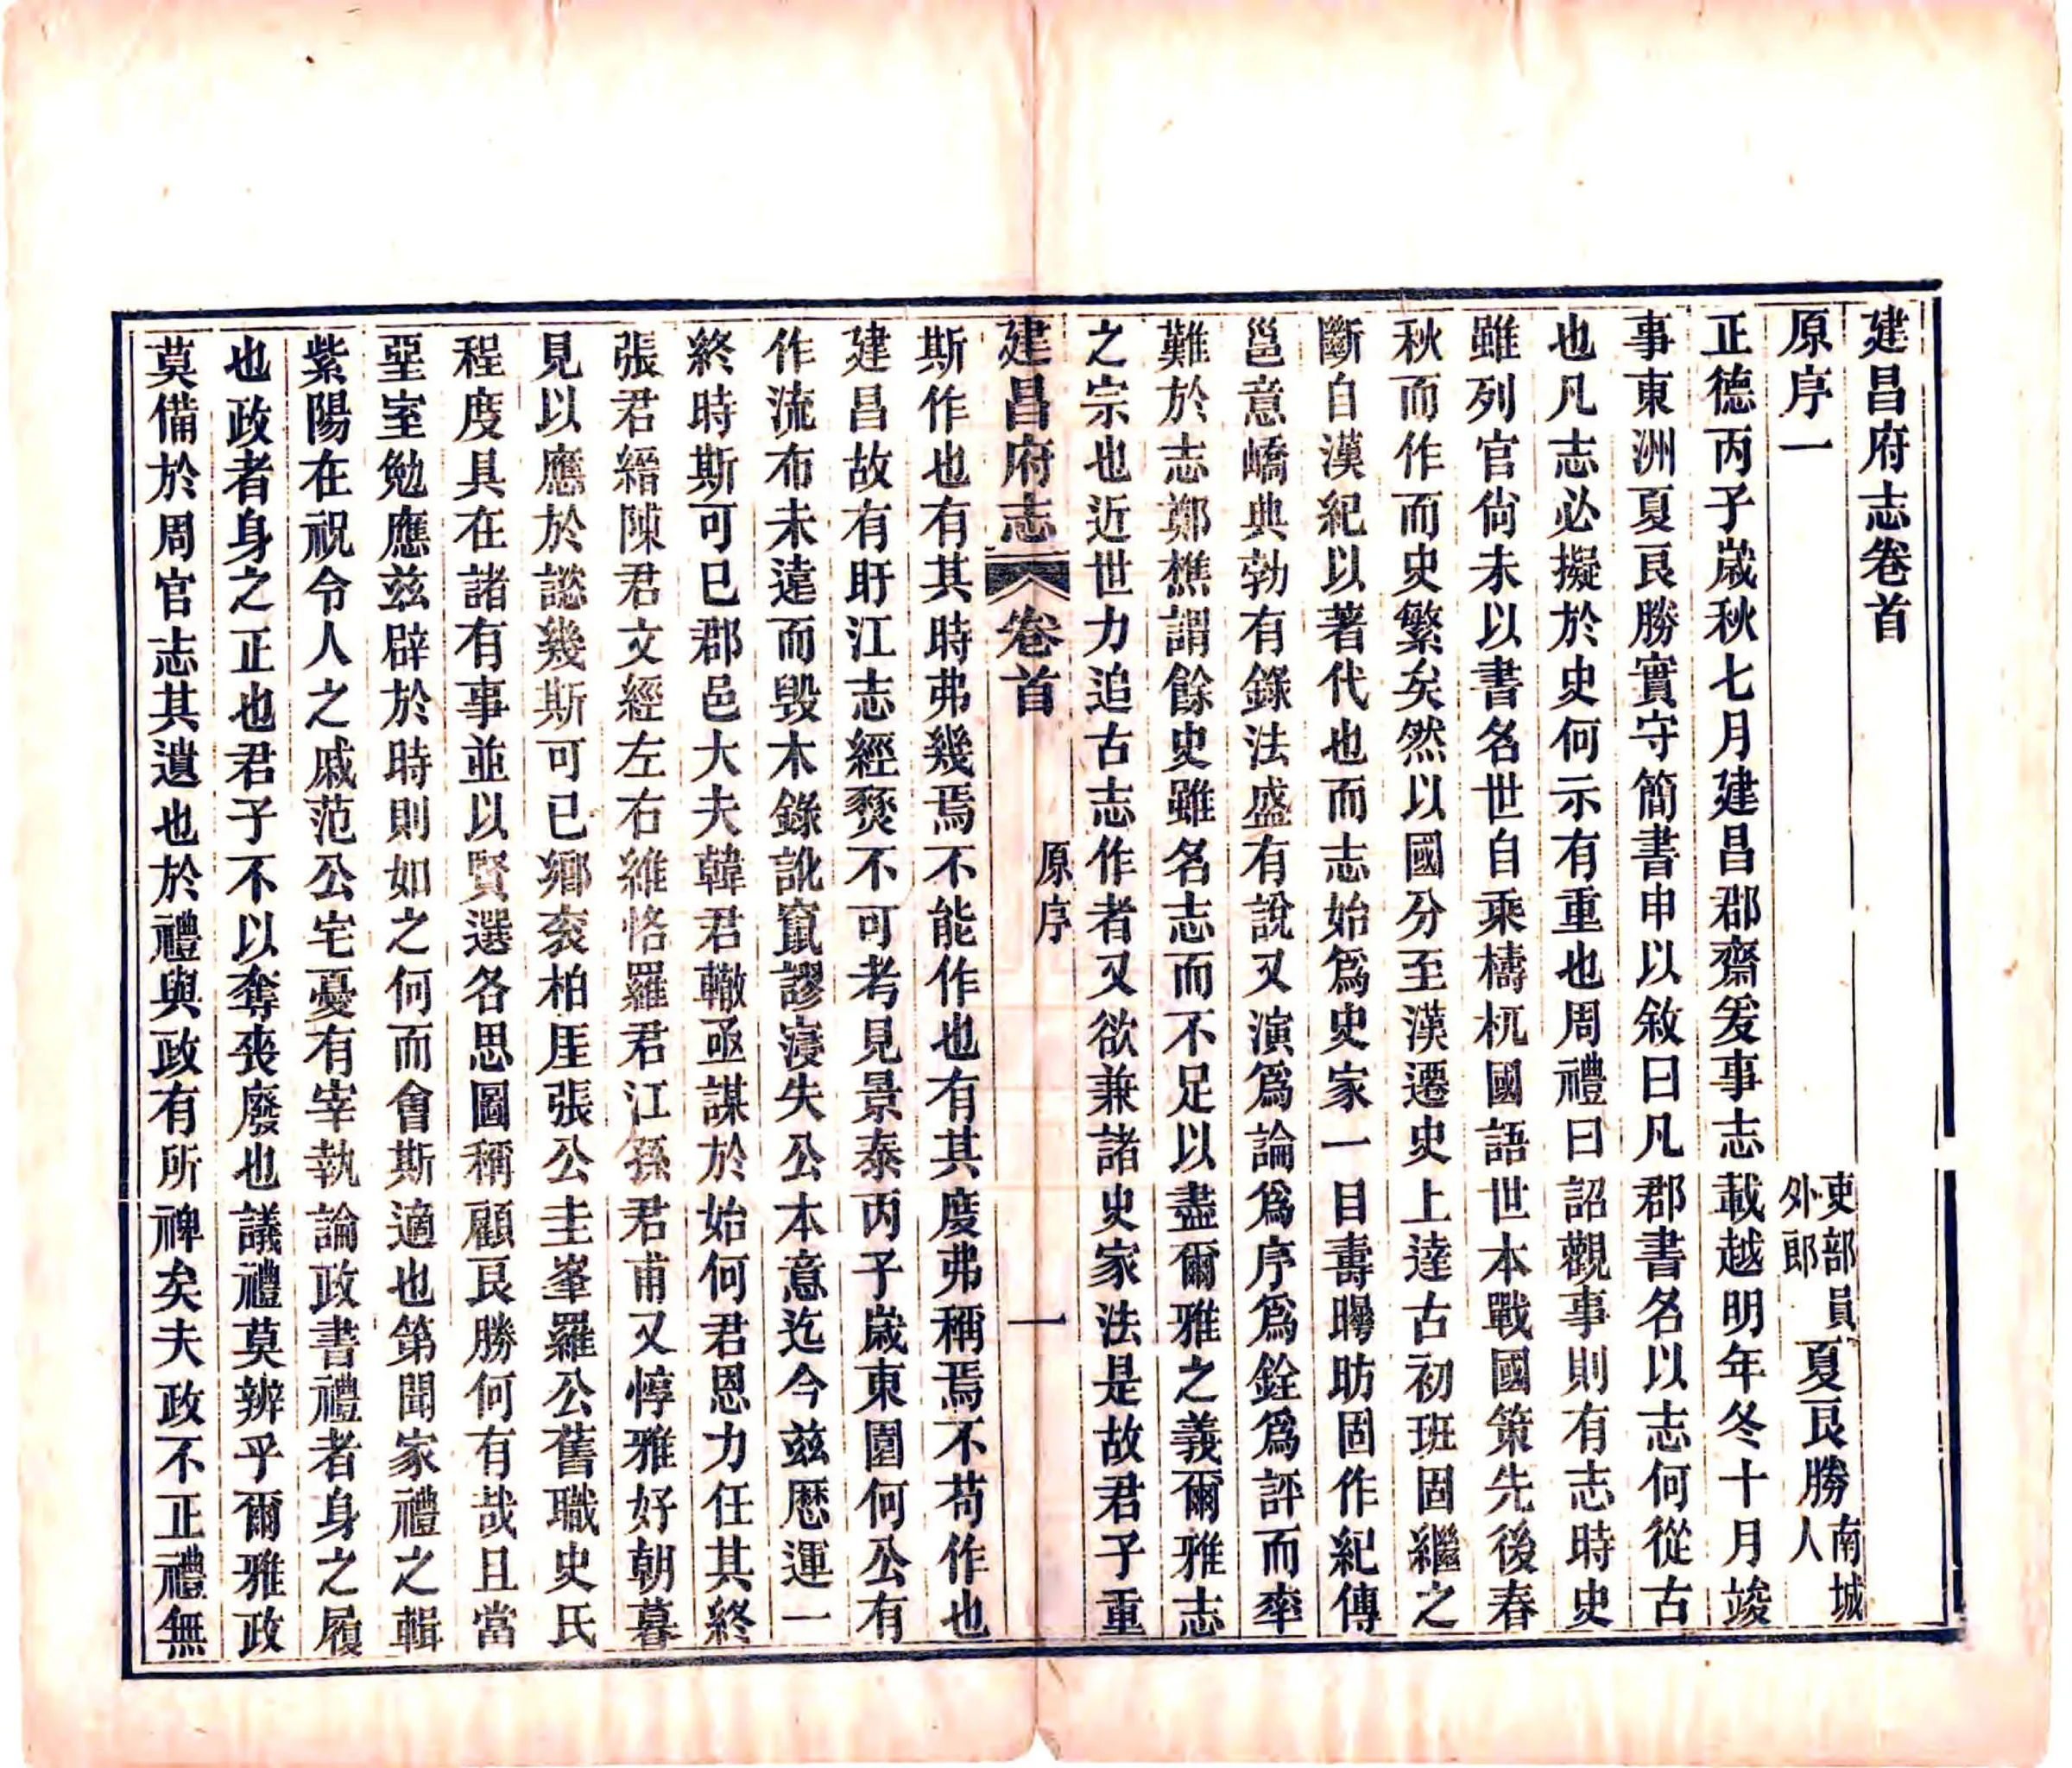 建昌府志卷首
原序一
吏部員外郎夏良勝南城人
正德丙子歲秋七月建昌郡齋爰事志載越明年冬十月竣
事東洲夏良勝實守簡書申以敘曰凡郡書名以志何從古
也凡志必擬於史何示有重也周禮曰詔觀事則有志時史
雖列官尙未以書名世自乘檮杌國語世本戰國策先後春
秋而作而史繁矣然以國分至漢遷史上達古初班固繼之
斷自漢紀以著代也而志始爲史家一目壽曄昉固作紀傳
邕意嶠典勃有錄法盛有說又演爲論爲序爲銓爲評而率
難於志鄭樵謂餘史雖名志而不足以盡爾雅之義爾雅志
之宗也近世力追古志作者又欲兼諸史家法是故君子重
建昌府志 卷首 原序 一
斯作也有其時弗幾焉不能作也有其度弗稱焉不苟作也
建昌故有盱江志經燹不可考見景泰丙子歲東園何公有
作流布未遠而毀木錄訛竄謬寖失公本意迄今兹歷運一
終時斯可已郡邑大夫韓君轍亟謀於始何君恩力任其終
張君縉陳君文經左右維恪羅君江孫君甫又惇雅好朝暮
見以應於諡幾斯可已鄉衮柏厓張公圭峯羅公舊職史氏
程度具在諸有事並以賢選各思圖稱顧良勝何有哉且當
堊室勉應兹辟於時則如之何而會斯適也第聞家禮之輯
紫陽在祝令人之戚范公宅憂有宰執論政書禮者身之履
也政者身之正也君子不以奪喪廢也議禮莫辨乎爾雅政
莫備於周官志其遺也於禮與政有所裨矣夫政不正禮無